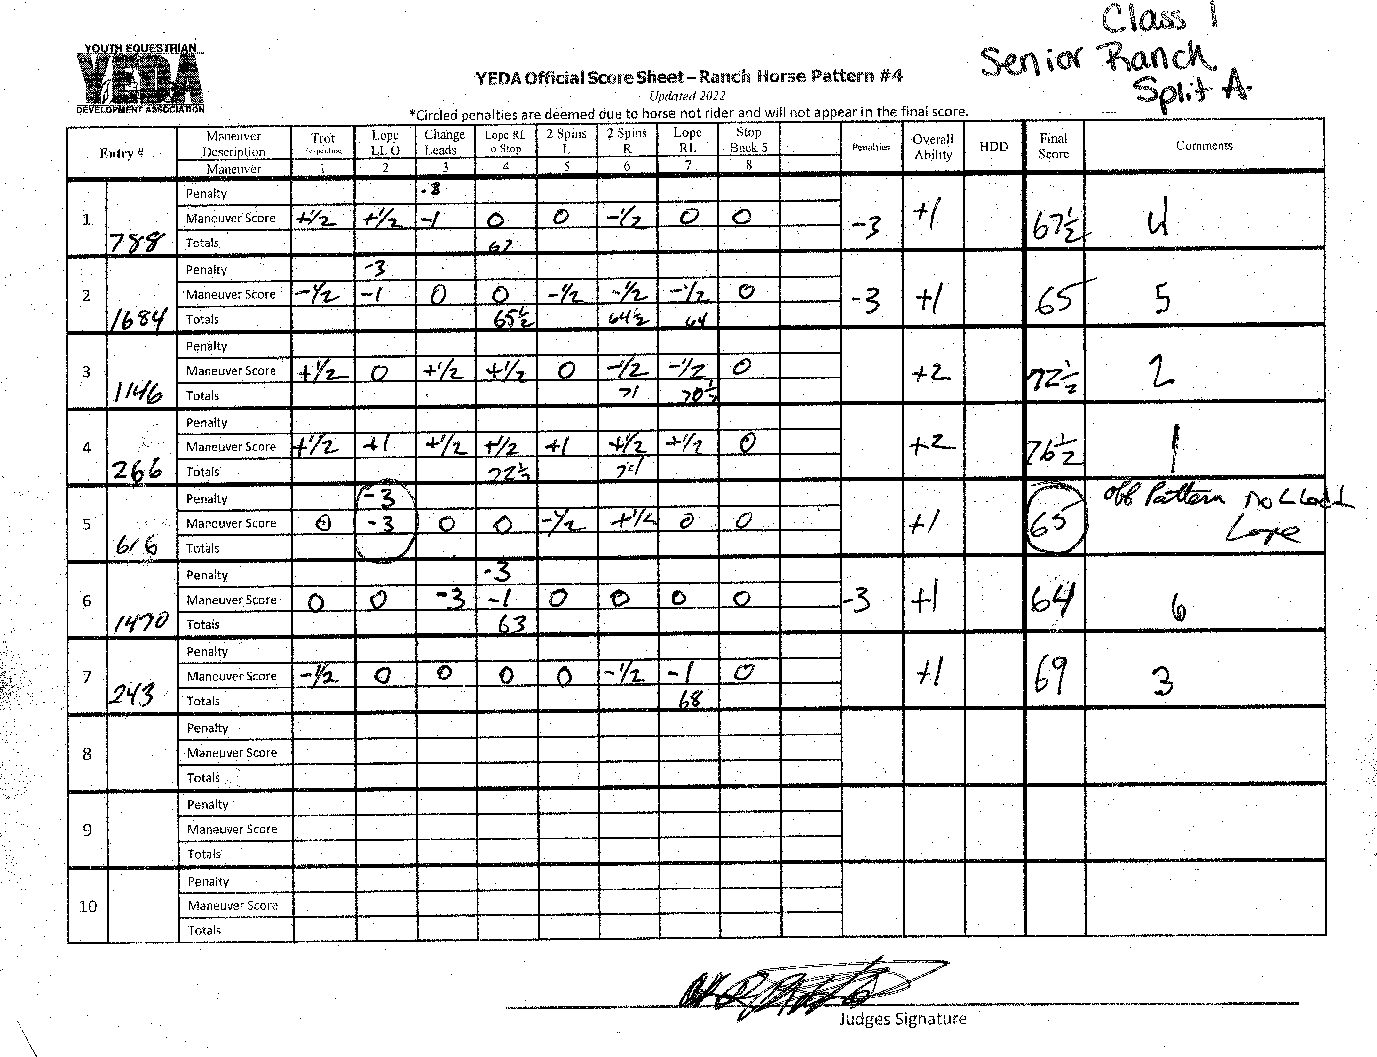 Class 1
Senior Ranch
Split A.
YOUTH EQUESTRIAN
YEDA
DEVELOPMENT ASSOCIATION
YEDA Official Score Sheet – Ranch Horse Pattern #4
Updated 2022
*Circled penalties are deemed due to horse not rider and will not appear in the final score.
Entry # Maneuver Description Trot Lope LL O Change Leads Lope RL o Stop 2 Spins L 2 Spins R Lope RL Stop Back 5 Penalties Overall Ability HDD Final Score Comments
Maneuver 1 2 3 4 5 6 7 8
Penalty -3
1 Maneuver Score +1/2 +1/2 -1 0 0 -1/2 0 0 -3 +1 67 1/2 4
788 Totals 67
Penalty -3
2 Maneuver Score -1/2 -1 0 0 -1/2 -1/2 -1/2 0 -3 +1 65 5
1684 Totals 65 1/2 64 1/2 64
Penalty
3 Maneuver Score +1/2 0 +1/2 +1/2 0 -1/2 -1/2 0 +2 72 1/2 2
1146 Totals 71 70 1/2
Penalty
4 Maneuver Score +1/2 +1 +1/2 +1/2 +1 +1/2 +1/2 0 +2 76 1/2 1
266 Totals 72 1/2
Penalty -3 Off Pattern no L Lead
5 Maneuver Score 0 -3 0 0 -1/2 +1/2 0 0 +1 65 Lope
616 Totals
Penalty -3
6 Maneuver Score 0 0 -3 -1 0 0 0 0 -3 +1 64 6
1470 Totals 63
Penalty
7 Maneuver Score -1/2 0 0 0 0 -1/2 -1 0 +1 69 3
243 Totals 68
Penalty
8 Maneuver Score
Totals
Penalty
9 Maneuver Score
Totals
Penalty
10 Maneuver Score
Totals
Judges Signature